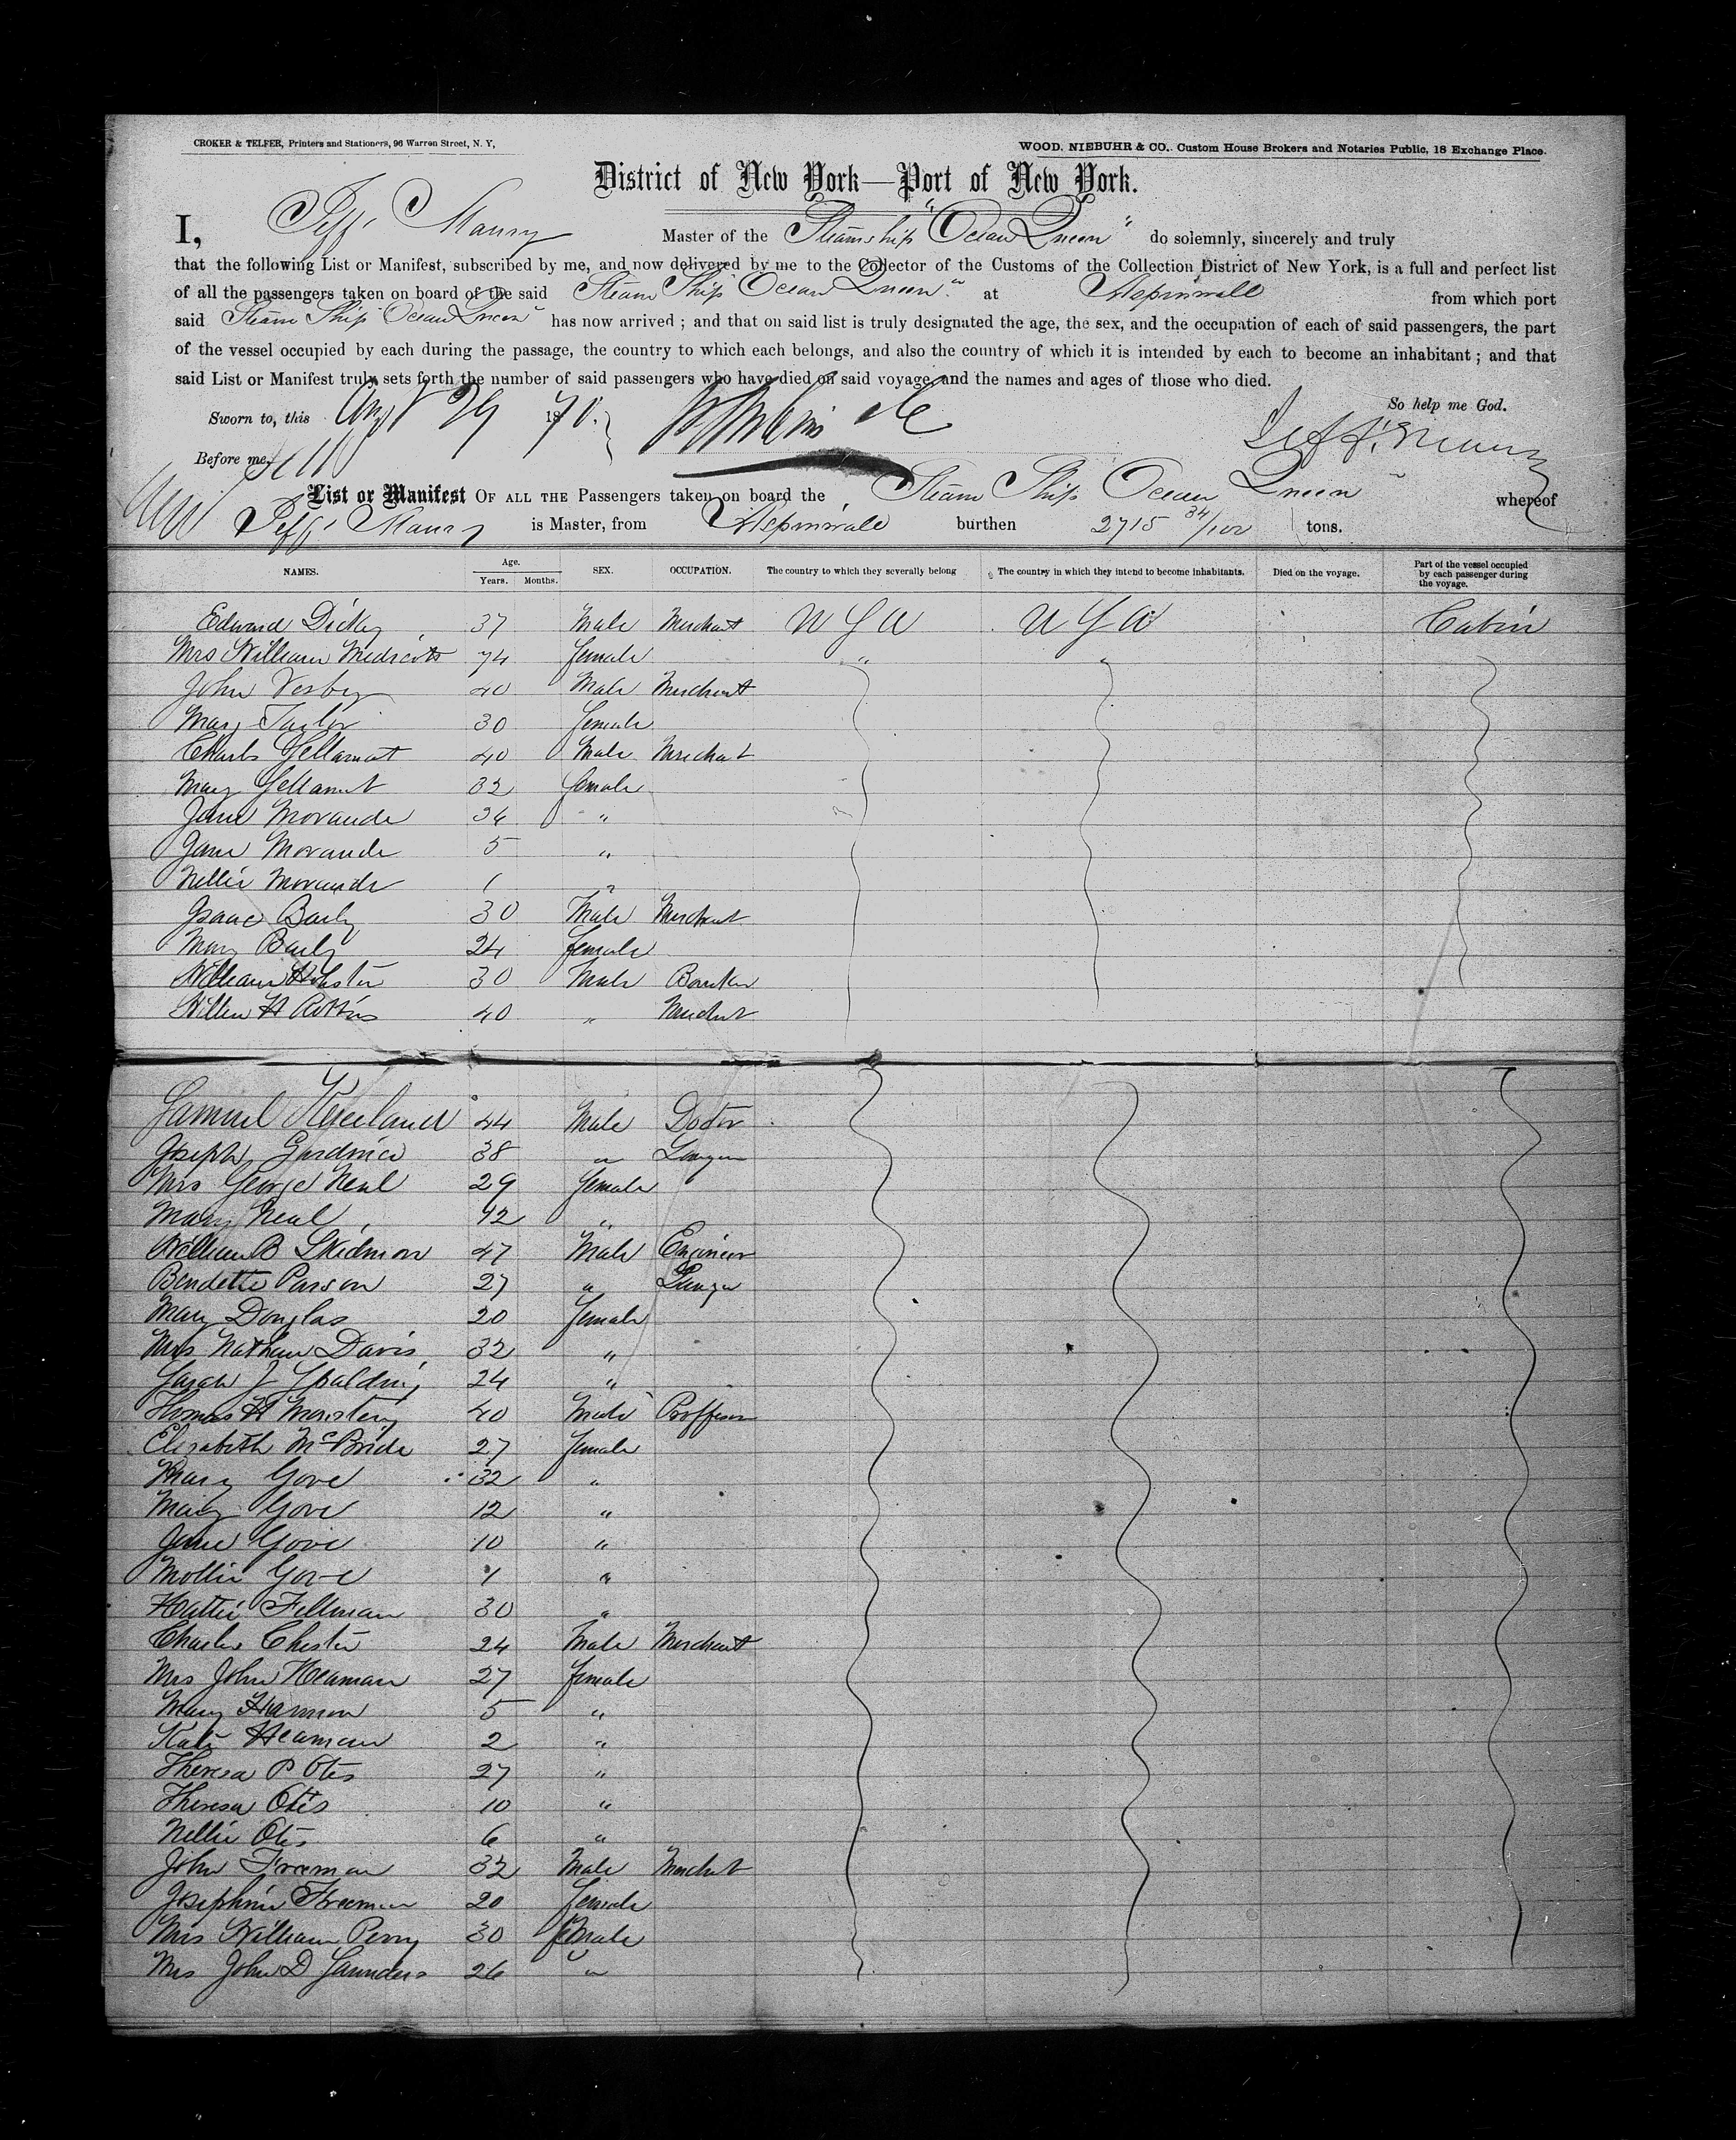 CROKER & TELFER, Printers and Stationers, 96 Warren Street, N. Y,
WOOD, NIEBUHR & CO., Custom House Brokers and Notaries Public, 18 Exchange Place.
District of New York—Port of New York.
I, Jeff. Maury Master of the Steamship "Ocean Queen" do solemnly, sincerely and truly
that the following List or Manifest, subscribed by me, and now delivered by me to the Collector of the Customs of the Collection District of New York, is a full and perfect list
of all the passengers taken on board of the said Steam Ship Ocean Queen" at Aspinwall from which port
said Steam Ship "Ocean Queen" has now arrived ; and that on said list is truly designated the age, the sex, and the occupation of each of said passengers, the part
of the vessel occupied by each during the passage, the country to which each belongs, and also the country of which it is intended by each to become an inhabitant ; and that
said List or Manifest truly sets forth the number of said passengers who have died on said voyage, and the names and ages of those who died.
So help me God.
Sworn to, this Augt 29 1870.
Jeff. Maury
Before me,
List or Manifest OF ALL THE Passengers taken on board the Steam Ship Ocean Queen" whereof
Jeff. Maury is Master, from Aspinwall burthen 2715 34/100 tons.
NAMES. Age. Years. Months. SEX. OCCUPATION. The country to which they severally belong The country in which they intend to become inhabitants. Died on the voyage. Part of the vessel occupied by each passenger during the voyage.
Edward Dickey 37 Male Merchant U S A U S A Cabin
Mrs William 74 female " "
John Vesby 40 Male Merchant
Mary Taylor 30 female
Charls 40 Male Merchant
Mary 32 female
Jane Morande 34 "
Jane Morande 5 "
Nellie Morande 1 "
Isaac Baily 30 Male Merchant
Mary Baily 24 female
William 30 Male Banker
H 40 " Merchant
Samuel Kneeland 44 Male Doctor
Joseph 38 " Lawyer
Mrs George Neal 29 female
Mary Neal 42 "
William B Skidmore 47 Male Engineer
Parson 27 " Lawyer
Mary Douglas 20 female
Mrs Nathan Davis 32 "
Sarah J Spalding 24 "
Thomas H Monstery 40 Male Proffessor
Elizabeth McBride 27 female
Mary Gove 32 "
Mary Gove 12 "
Jane Gove 10 "
Mollie Gove "
Hattie Fillman 30 "
Charles Chester 24 Male Merchant
Mrs John Heaman 27 female
Mary 5 "
Kate Heaman 2 "
Theresa P Otis 27 "
Theresa Otis 10 "
Nellie Otis 6 "
John Freeman 32 Male Merchant
Josephine Freeman 20 female
Mrs William Perry 30 female
Mrs John D Saunders 26 "